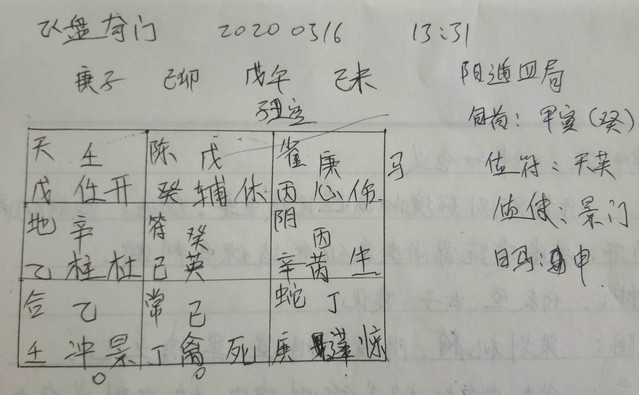 飞盘奇门 20200316 13:31
庚子 己卯 戊午 己未 阳遁四局
旬首:甲寅(癸)
天 壬 陈 戊 雀 庚 马
戊 任 开 癸 辅 休 丙 心 伤
值符:天英
地 辛 符 癸 阴 丙
值使:景门
乙 柱 杜 己 英 辛 芮 生
日马:申
合 乙 常 己 蛇 丁
壬 冲 景 丁 禽 死 庚 蓬 惊